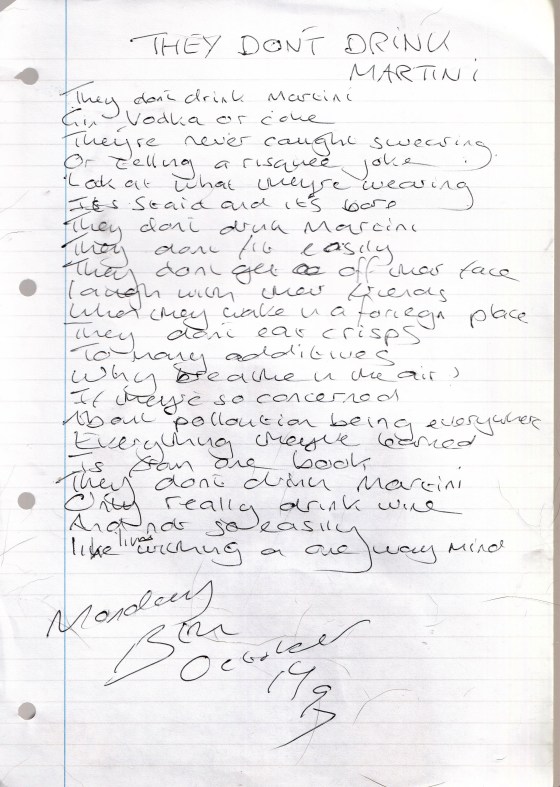 THEY DON'T DRINK
MARTINI
They don't drink Martini
Gin Vodka or coke
They're never caught swearing
Or telling a risquee joke
Look at what they're wearing
It's staid and it's bore
They don't drink Martini
They dont fit easily
They don't get off their face
laugh with their friends
When they wake in a foreign place
They don't eat crisps
To many additives
Why breathe in the air?
If they're so concerned
About polloution being everywhere
Everything they've learned
Is from one book
They don't drink Martini
Only really drink wine
And not so easily
like lives a one way mind
Monday
October